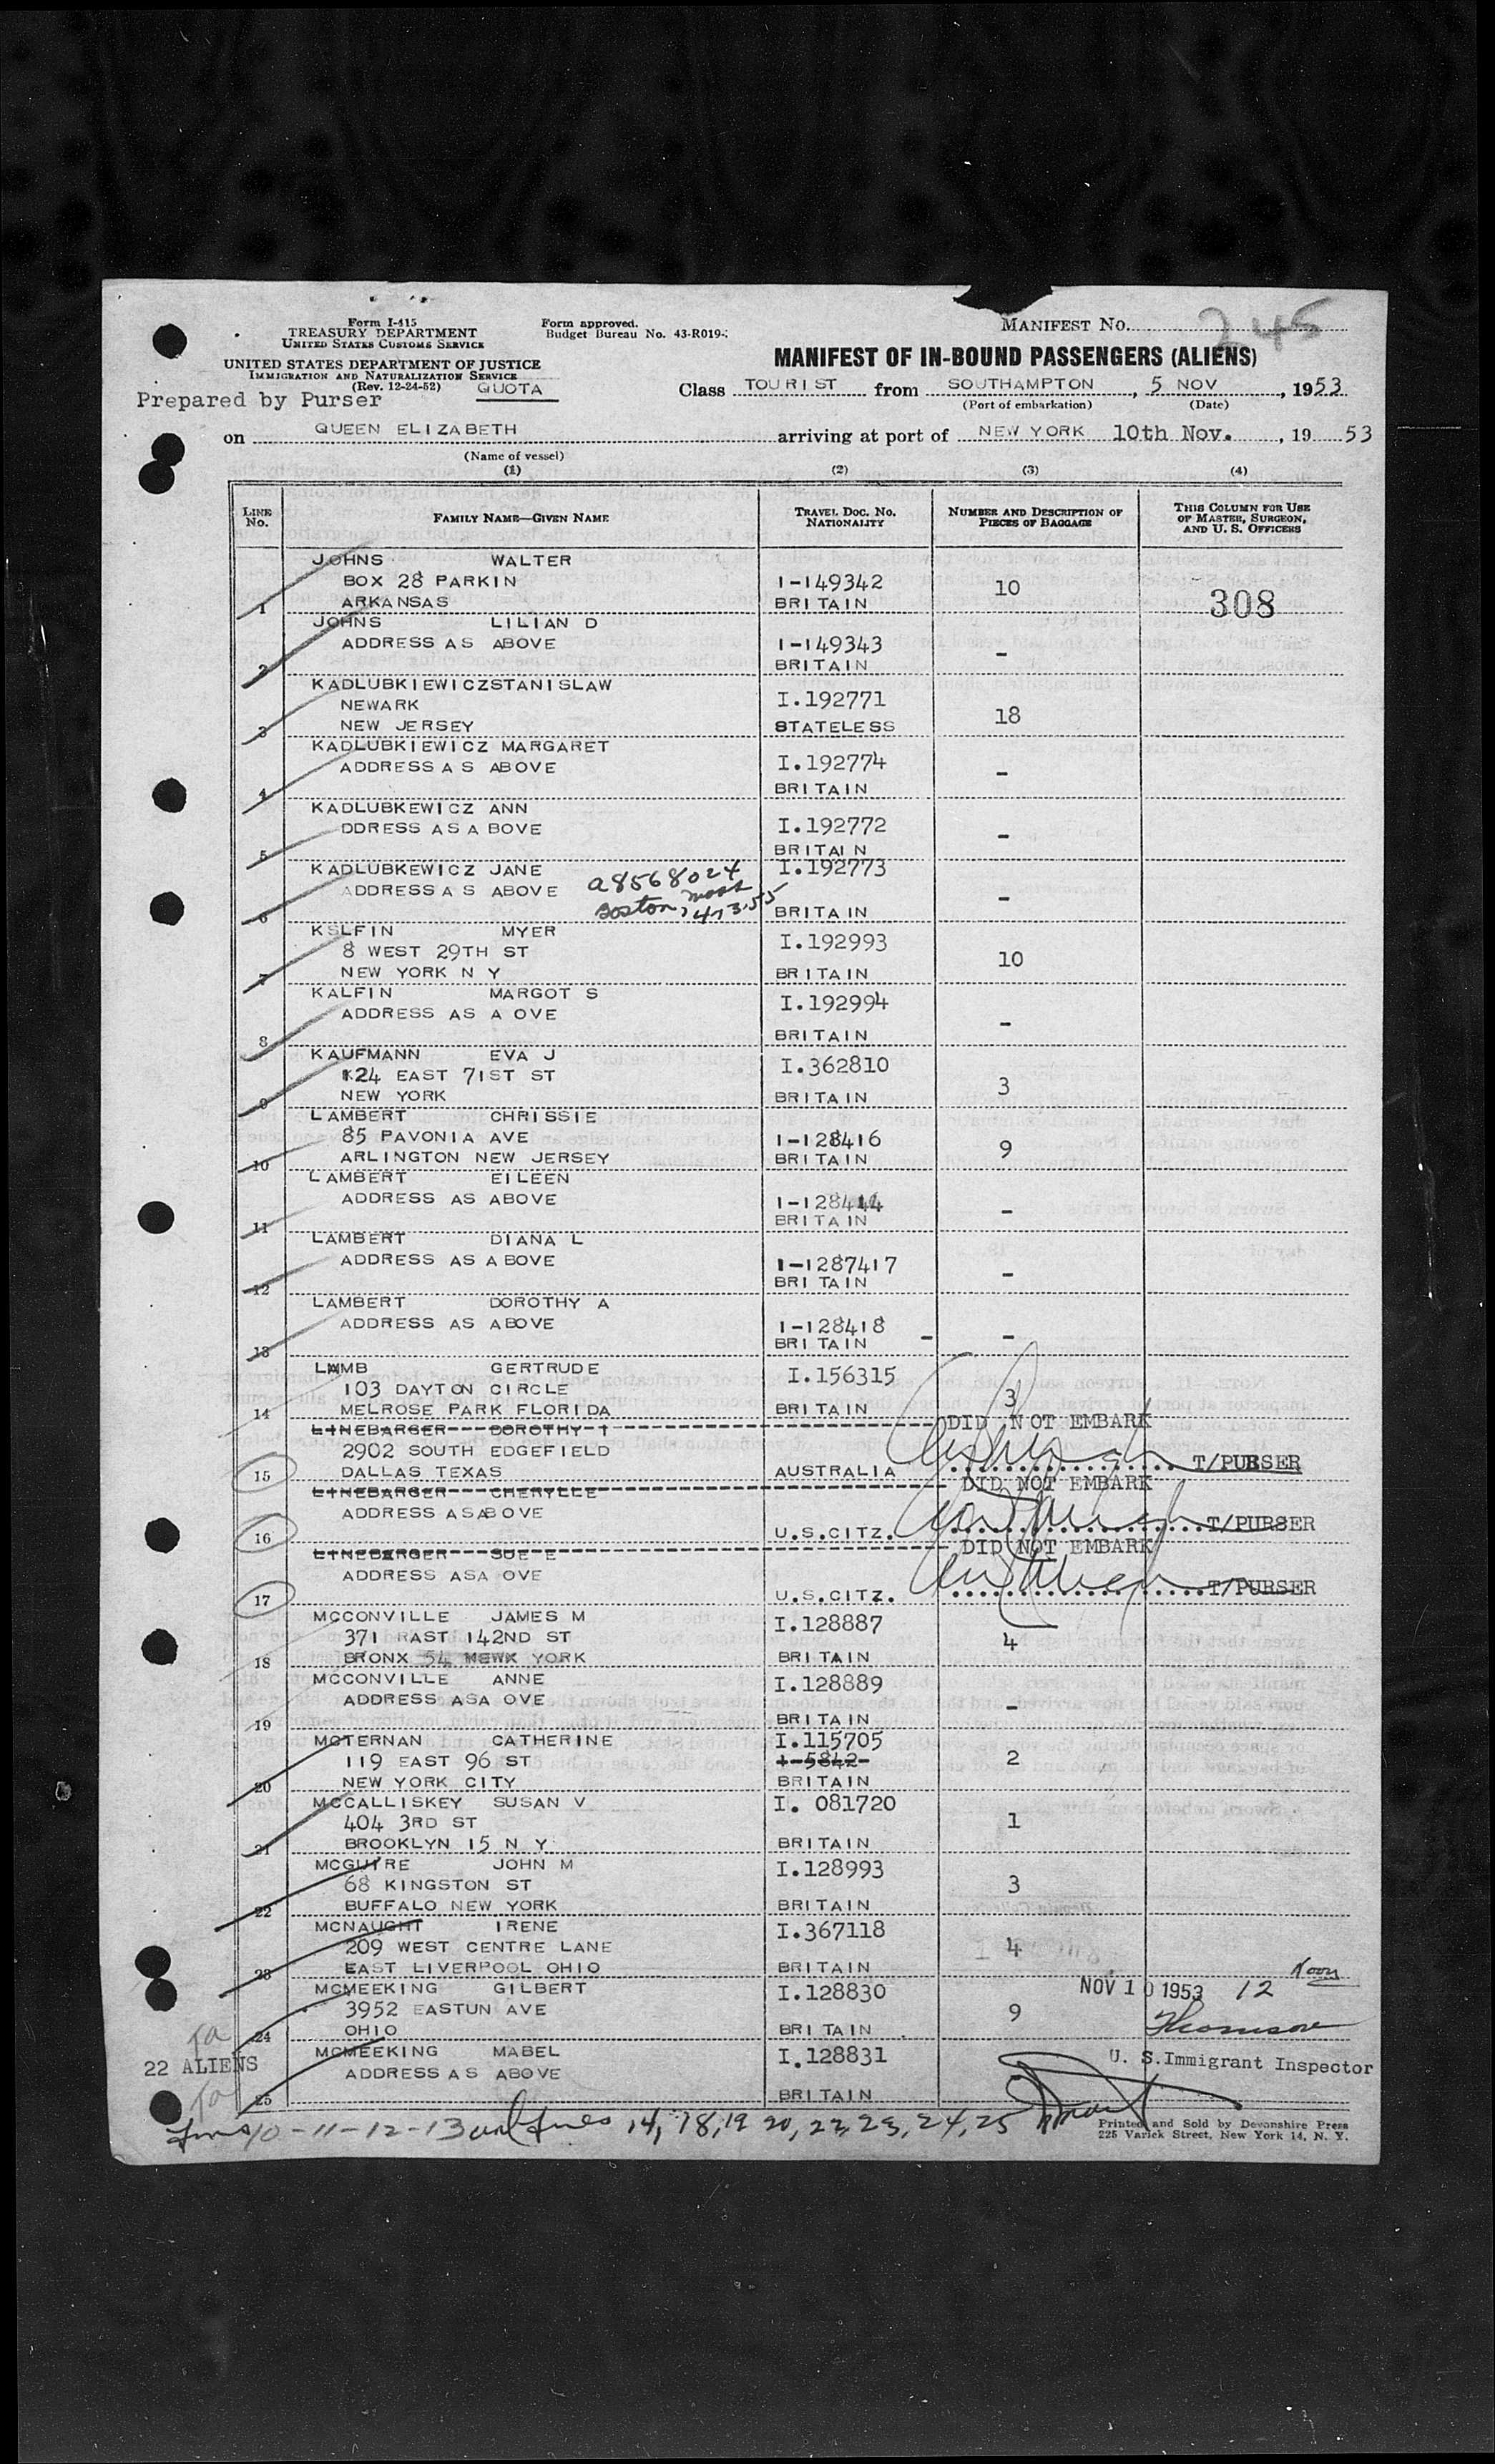 Form I-415
TREASURY DEPARTMENT
UNITED STATES CUSTOMS SERVICE
UNITED STATES DEPARTMENT OF JUSTICE
IMMIGRATION AND NATURALIZATION SERVICE
(Rev. 12-24-52) QUOTA
Prepared by Purser
Form approved.
Budget Bureau No. 43-R019-
MANIFEST No. 245
MANIFEST OF IN-BOUND PASSENGERS (ALIENS)
Class TOURIST from SOUTHAMPTON, 5 NOV, 1953
(Port of embarkation) (Date)
on QUEEN ELIZABETH arriving at port of NEW YORK 10th Nov., 19 53
(Name of vessel)
(1) (2) (3) (4)
LINE No. FAMILY NAME—GIVEN NAME TRAVEL DOC. NO. NATIONALITY NUMBER AND DESCRIPTION OF PIECES OF BAGGAGE THIS COLUMN FOR USE OF MASTER, SURGEON, AND U. S. OFFICERS
JOHNS WALTER
BOX 28 PARKIN I-149342 10
1 ARKANSAS BRITAIN 308
JOHNS LILIAN D
ADDRESS AS ABOVE I-149343 -
2 BRITAIN
KADLUBKIEWICZSTANISLAW I.192771
NEWARK
3 NEW JERSEY STATELESS 18
KADLUBKIEWICZ MARGARET
ADDRESS A S ABOVE I.192774 -
4 BRITAIN
KADLUBKEWICZ ANN
DDRESS AS A BOVE I.192772 -
5 BRITAIN
KADLUBKEWICZ JANE I.192773
ADDRESS A S ABOVE a8568024 -
6 Boston, Mass BRITAIN
KSLFIN MYER I.192993
8 WEST 29TH ST 10
7 NEW YORK N Y BRITAIN
KALFIN MARGOT S I.192994
ADDRESS AS A OVE -
8 BRITAIN
KAUFMANN EVA J I.362810
124 EAST 71ST ST 3
9 NEW YORK BRITAIN
LAMBERT CHRISSIE
85 PAVONIA AVE I-128416 9
10 ARLINGTON NEW JERSEY BRITAIN
LAMBERT EILEEN
ADDRESS AS ABOVE I-128414 -
11 BRITAIN
LAMBERT DIANA L
ADDRESS AS A BOVE I-1287417 -
12 BRITAIN
LAMBERT DOROTHY A
ADDRESS AS ABOVE I-128418
13 BRITAIN - -
LAMB GERTRUDE I.156315
103 DAYTON CIRCLE 3
14 MELROSE PARK FLORIDA BRITAIN
LINEBARGER DOROTHY I DID NOT EMBARK
2902 SOUTH EDGEFIELD
15 DALLAS TEXAS AUSTRALIA T/PURSER
LINEBARGER CHERYLLE DID NOT EMBARK
ADDRESS AS ABOVE
16 U.S.CITZ. T/PURSER
LINEBARGER SUE E DID NOT EMBARK
ADDRESS ASA OVE
17 U.S.CITZ. T/PURSER
MCCONVILLE JAMES M I.128887
371 RAST 142ND ST 4
18 BRONX 54 NEWK YORK BRITAIN
MCCONVILLE ANNE I.128889
ADDRESS ASA OVE -
19 BRITAIN
MCTERNAN CATHERINE I.115705
119 EAST 96 ST I-5842 2
20 NEW YORK CITY BRITAIN
MCCALLISKEY SUSAN V I. 081720
404 3RD ST 1
21 BROOKLYN 15 N Y BRITAIN
MCGUIRE JOHN M I.128993
68 KINGSTON ST 3
22 BUFFALO NEW YORK BRITAIN
MCNAUGHT IRENE I.367118
209 WEST CENTRE LANE 4
23 EAST LIVERPOOL OHIO BRITAIN
MCMEEKING GILBERT I.128830 NOV 10 1953 12 Noon
3952 EASTUN AVE 9
24 OHIO BRITAIN
MCMEEKING MABEL I.128831 U. S. Immigrant Inspector
22 ALIENS ADDRESS A S ABOVE
25 BRITAIN
10-11-12-13 and lines 14, 18, 19 20, 22, 23, 24, 25
Printed and Sold by Devonshire Press
225 Varick Street, New York 14, N. Y.